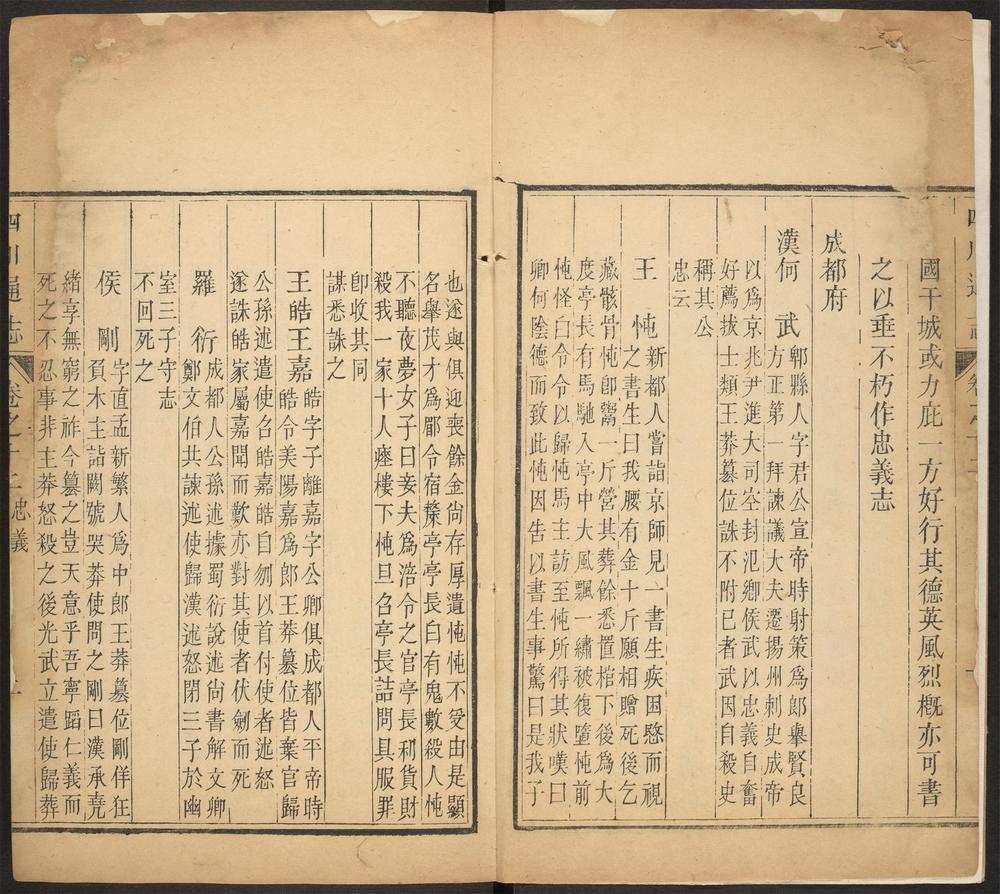 國干城或力庇一方好行其德英風烈概亦可書
之以垂不朽作忠義志
成都府
漢何武郫縣人字君公宣帝時射策爲郎舉賢良
方正第一拜諫議大夫遷揚州刺史成帝
以爲京兆尹進大司空封氾鄉侯武以忠義自奮
好薦拔士類王莽篡位誅不附已者武因自殺史
稱其公
忠云
王忳新都人嘗詣京師見一書生疾困愍而視
之書生曰我腰有金十斤願相贈死後乞
藏骸骨忳卽鬻一斤營其葬餘悉置棺下後爲大
度亭長有馬馳入亭中大風飄一繡被復墮忳前
忳怪白令令以歸忳馬主訪至忳所得其狀嘆曰
卿何陰德而致此忳因告以書生事驚曰是我子
也遂與俱迎喪餘金尙存厚遺忳忳不受由是顯
名舉茂才爲郿令宿斄亭亭長曰有鬼數殺人忳
不聽夜夢女子曰妾夫爲涪令之官亭長利貨財
殺我一家十人瘞樓下忳旦召亭長詰問具服罪
卽收其同
謀悉誅之
王皓王嘉皓字子離嘉字公卿俱成都人平帝時
皓令美陽嘉爲郎王莽篡位皆棄官歸
公孫述遣使召皓嘉皓自刎以首付使者述怒
遂誅皓家屬嘉聞而歎亦對其使者伏劍而死
羅衍成都人公孫述據蜀衍說述尙書解文卿
鄭文伯共諫述使歸漢述怒閉三子於幽
室三子守志
不回死之
侯剛字直孟新繁人爲中郎王莽篡位剛佯狂
負木主詣闕號哭莽使問之剛曰漢承堯
緒享無窮之祚今篡之豈天意乎吾寧蹈仁義而
死之不忍事非主莽怒殺之後光武立遣使歸葬
四川通志
卷之十二忠義